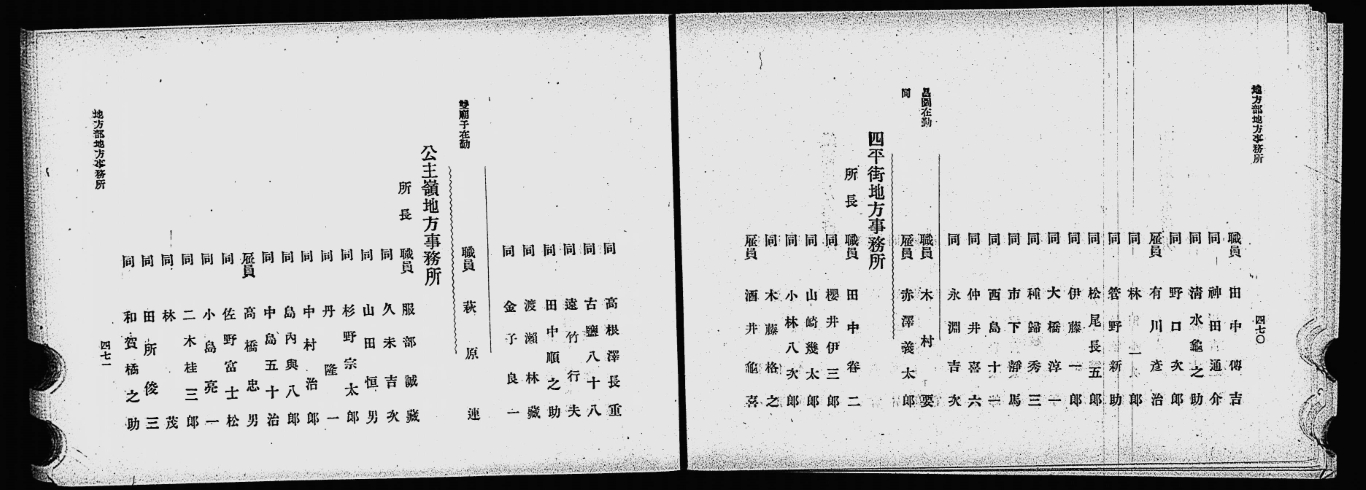 地方部地方事務所
四七〇
職員 田中傳吉
同 神田通介
同 清水龜之助
同 野口次郎
雇員 有川彦治
同 林一太郎
同 菅野新助
同 松尾長五郎
同 伊藤一郎
同 大橋淳一
同 種歸秀三
同 市下靜馬
同 西島十一
同 仲井喜六
同 永淵吉次
昌圖在勤 職員 木村要
同 雇員 赤澤義太郎
四平街地方事務所
所長 職員 田中春二
同 櫻井伊三郎
同 山崎幾太郎
同 小林八次郎
同 木藤格之
雇員 酒井龜喜
同 高根澤長重
同 古鹽八十八
同 遠竹行夫
同 田中順之助
同 渡瀬林藏
同 金子良一
雙廟子在勤 職員 萩原連
公主嶺地方事務所
所長 職員 服部誠藏
同 久未吉次
同 山田恒男
同 杉野宗太郎
同 丹隆一
同 中村治郎
同 島內與八郎
同 中島五十治
雇員 高橋忠男
同 佐野富士松
同 小島亮一
同 二木桂三郎
同 林茂
同 田所俊三
同 和賀橘之助
地方部地方事務所
四七一